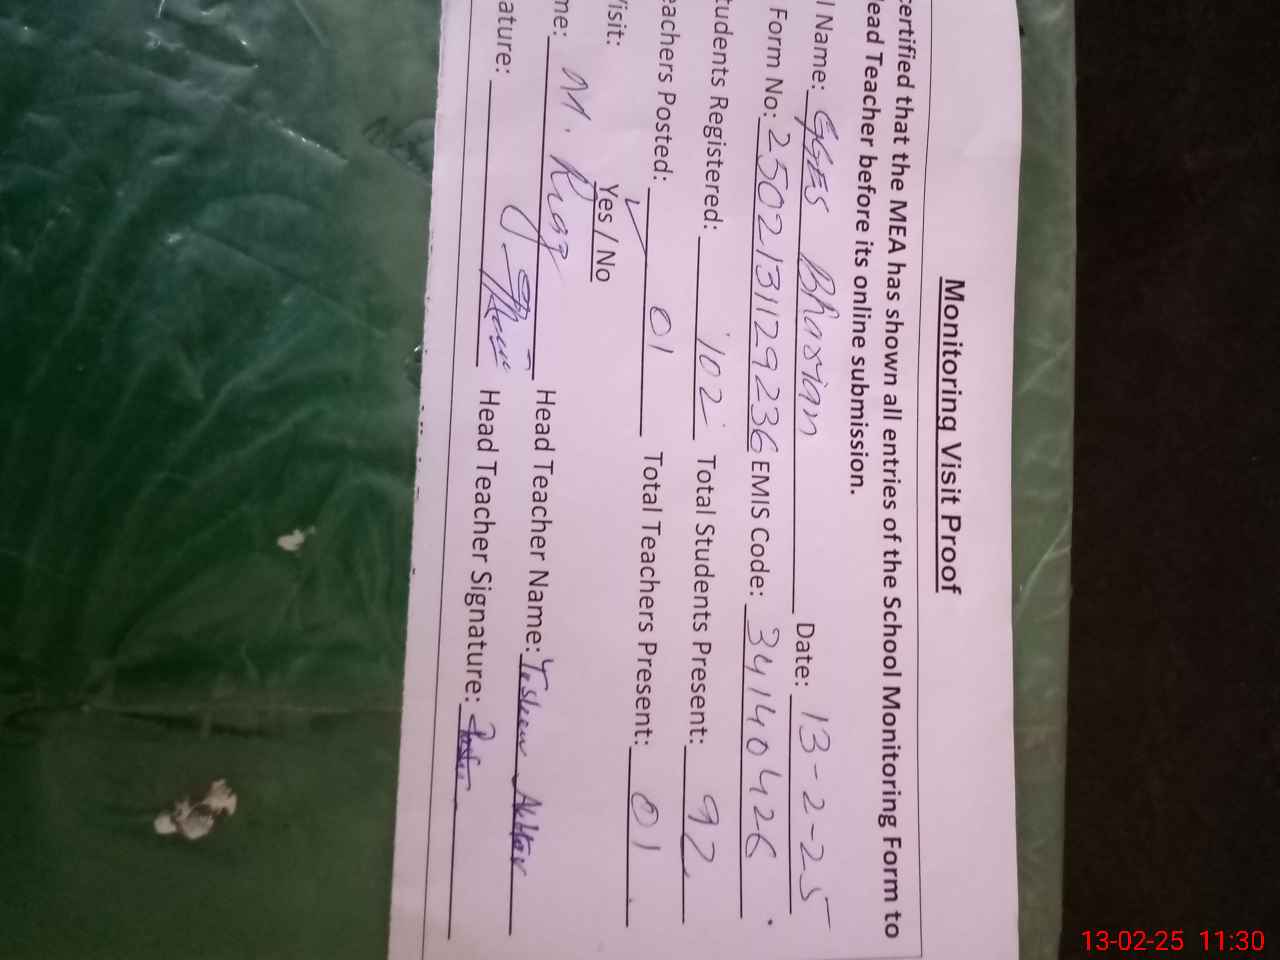 Monitoring Visit Proof
ertified that the MEA has shown all entries of the School Monitoring Form to
lead Teacher before its online submission.
l Name: GGES Bharian Date: 13-2-25
Form No: 2502131129236 EMIS Code: 34140426
tudents Registered: 102 Total Students Present: 92
eachers Posted: 01 Total Teachers Present: 01
isit: Yes / No
me: M. Riaz Head Teacher Name: Tasleem Akhtar
ature: Head Teacher Signature:
13-02-25 11:30